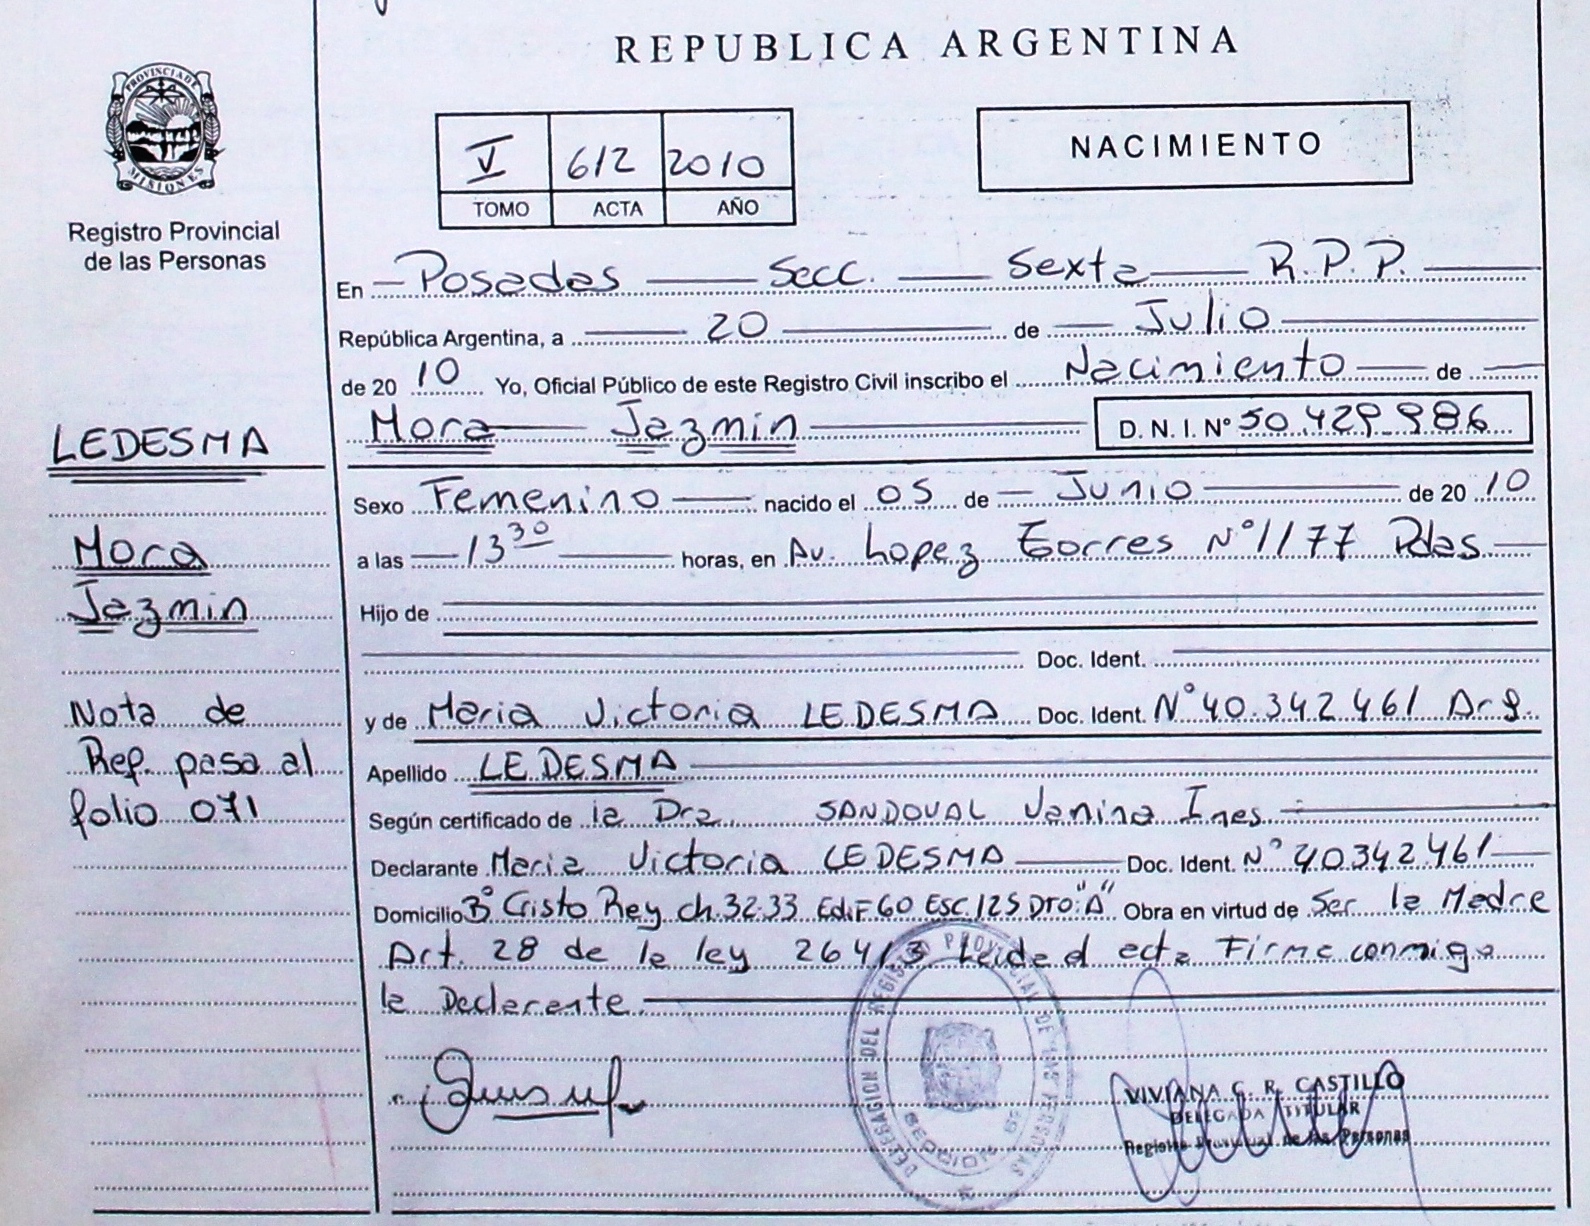 REPUBLICA ARGENTINA
PROVINCIA DE MISIONES
Registro Provincial
de las Personas
V 612 2010
TOMO ACTA AÑO
NACIMIENTO
En Posadas Secc. Sexta R.P.P.
República Argentina, a 20 de Julio
de 2010 Yo, Oficial Público de este Registro Civil inscribo el Nacimiento de
Mora Jazmin D. N. I. Nº 50.429.986
Sexo Femenino nacido el 05 de Junio de 2010
a las 13 30 horas, en Av. Lopez Torres Nº 1177 Pdas
Hijo de
Doc. Ident.
y de Maria Victoria LEDESMA Doc. Ident. Nº 40.342.461 Arg.
Apellido LEDESMA
Según certificado de la Dra SANDOVAL Vanina Ines
Declarante Maria Victoria LEDESMA Doc. Ident. Nº 40342461
Domicilio Bº Cristo Rey ch. 32-33 Edif 60 Esc. 125 Dto: "A" Obra en virtud de Ser la Madre
Art. 28 de la ley 26413 Leida el acta Firma conmigo
la Declarante
LEDESMA
Mora
Jazmin
Nota de
Ref. pasa al
folio 071
DELEGACION DEL REGISTRO PROVINCIAL DE LAS PERSONAS
SECCION 6ª
VIVIANA G. R. CASTILLO
DELEGADA TITULAR
Registro Provincial de las Personas